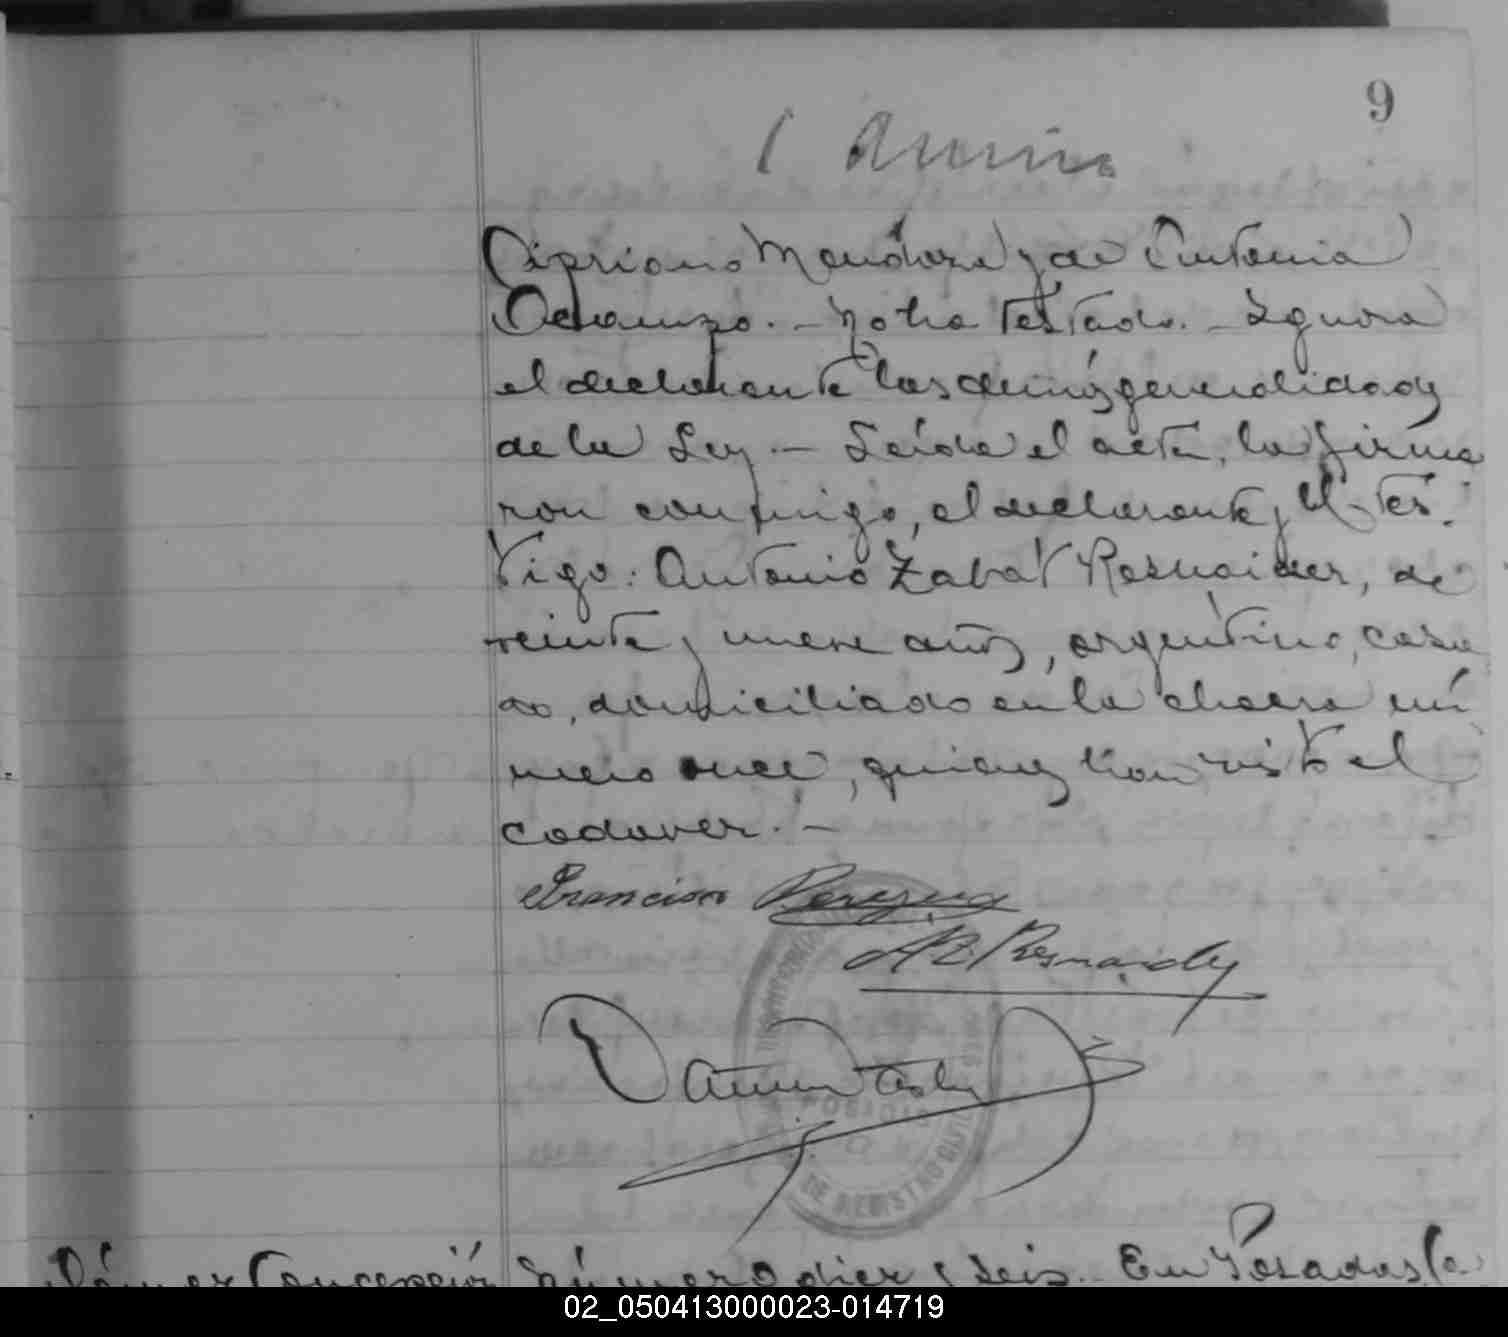 9
Cipriano Mendoza y de Antonia
Ocampo. - No ha testado. - Ignora
el declarante las demás generalidades
de la Ley. - Leída el acta, la firma
ron conmigo, el declarante y el tes-
tigo: Antonio Zabat Resnaider, de
veinte y nueve años, argentino, casa
do, domiciliado en la chacra nú
mero once, quienes han visto el
cadaver. -
Francisco
A Z. Resnaidy
DE REGISTRO CIVIL
POSADAS
Concepción Número diez y seis. En Posadas, Ca
02_050413000023-014719